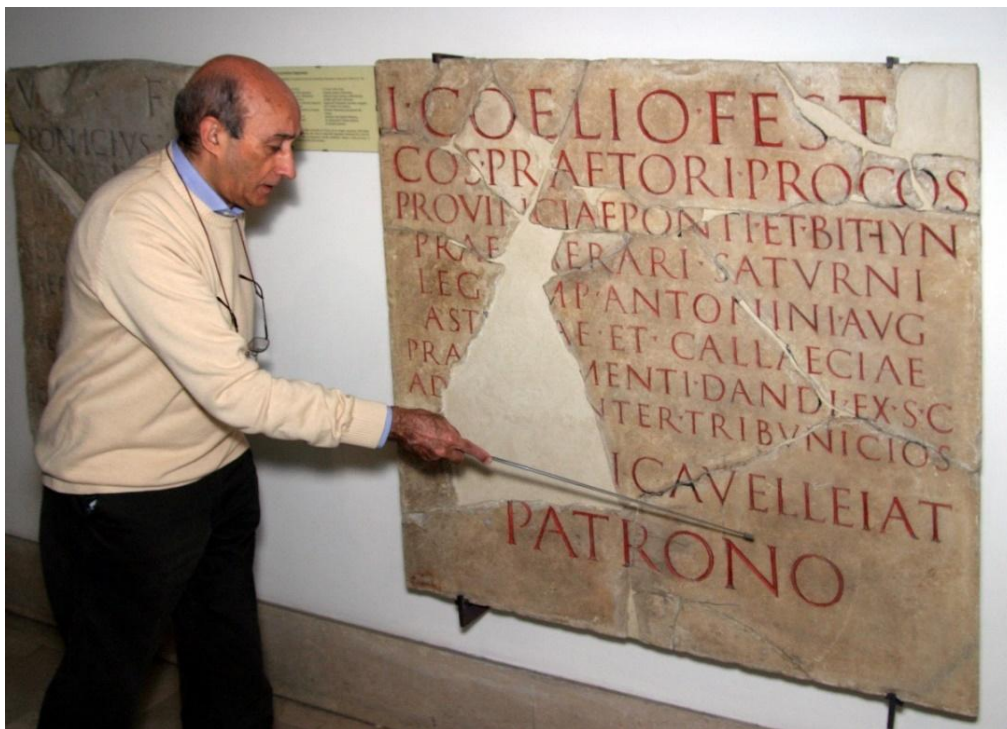 V F
PONICIVS
I·COELIO·FEST
COS·PRAETORI·PROCOS
PROVINCIAE·PONTI·ET·BITHYN
PRAE ERARI·SATVRNI
LEG MP·ANTONINI·AVG
AST AE·ET·CALLAECIAE
PRA MENTI·DANDI·EX·S·C
AD NTER·TRIBVNICIOS
ICAVELLEIAT
PATRONO